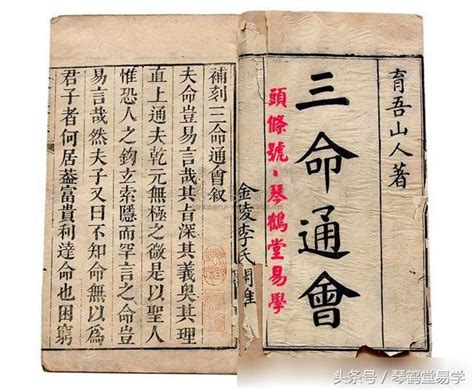 育吾山人著
三命通會
頭條號·琴鶴堂易學
金陵李氏
補刻三命通會叙
夫命豈易言哉其旨深其義奥其理
直上通夫乾元無極之微是以聖人
惟恐人之鈎玄索隱而罕言之命豈
易言哉然夫子又曰不知命無以爲
君子者何居葢富貴利達命也困窮
头条号 / 琴鹤堂易学